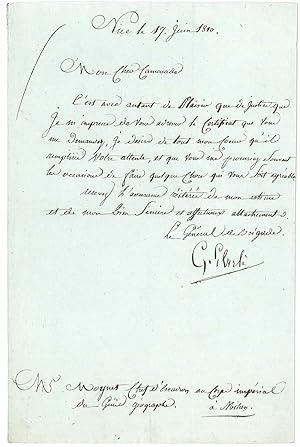 Nice le 17 Juin 1810.
Mon Cher Camarade
C'est avec autant de Plaisir que de Justice que
Je m'empresse de vous adresser le Certificat que vous
me demandez, je désire de tout mon Coeur qu'il
remplisse votre attente, et que vous me procuriez souvent
les occasions de faire quelque Chose qui vous soit agréable
recevez l'assurance réitérée de mon estime
et de mon bien Sincère et affectueux attachement
Le Général de Brigade
Mr Chef d'Escadron au Corps impérial
du Génie géographe
à Milan